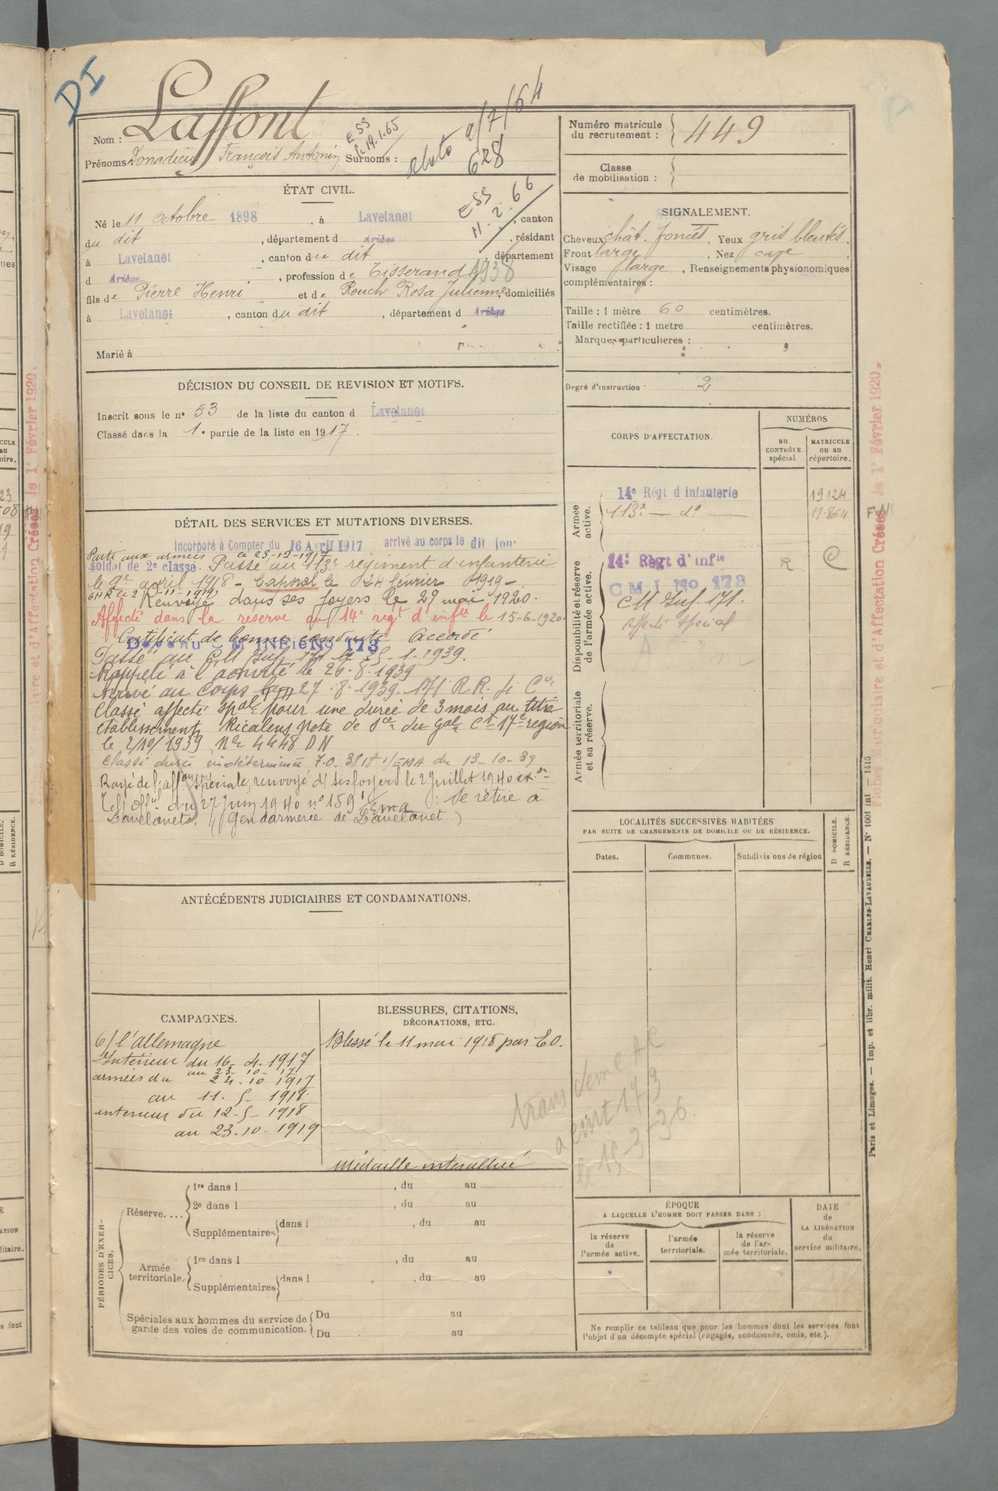 DI
Nom : Laffont
Prénoms Donadieu François Antonin Surnoms :
ESS
le 19.1.65
9/7/64
628
ESS
11.2.66
Numéro matricule du recrutement : 449
Classe de mobilisation :
ÉTAT CIVIL.
Né le 11 octobre 1898, à Lavelanet, canton
du dit, département d Ariège, résidant
à Lavelanet, canton du dit, département
d Ariège, profession de Tisserand 1938
fils de Pierre Henri et de Rouch Rosa Julienne, domiciliés
à Lavelanet, canton du dit, département d Ariège
Marié à
SIGNALEMENT.
Cheveux chât. foncés. Yeux gris bleutés.
Front large. Nez cave
Visage large, Renseignements physionomiques
complémentaires :
Taille : 1 mètre 60 centimètres.
Taille rectifiée : 1 mètre centimètres.
Marques particulières :
Degré d'instruction : 2
DÉCISION DU CONSEIL DE REVISION ET MOTIFS.
Inscrit sous le n° 53 de la liste du canton d Lavelanet
Classé dans la 1e partie de la liste en 1917.
DÉTAIL DES SERVICES ET MUTATIONS DIVERSES.
Incorporé à Compter du 16 Avril 1917 arrivé au corps le dit jour
Parti aux armées le 23-12-1917
soldat de 2e classe. Passé au 113e régiment d'infanterie
le 9 avril 1918 - Caporal le 24 février 1919 -
Renvoyé dans ses foyers le 29 mai 1920.
Affecté dans la réserve au 14e regt d'infie le 15-6-1920
Certificat de bonne conduite "Accordé"
Devenu C M INFie No 173
Passé au C.M. Inf. 171 le 1.1939.
Rappelé à l'activité le 26.8.1939
Arrivé au corps le 27.8.1939. 171 R.R. Cie
Classé affecté spal pour une durée de 3 mois au titre
établissements Ricalens Note de Sce du Gal Ct 17e région
le 2/10/1939 No 4448 DN
Classé durée indéterminée du 13-10-39
Rayé de l'affon spéciale, renvoyé ds ses foyers le 2 juillet 1940
du 27 juin 1940 n° 159 1/EMA : Se retire à
Lavelanet. (Gendarmerie de Lavelanet)
CORPS D'AFFECTATION.
NUMÉROS
au CONTRÔLE spécial
MATRICULE ou au répertoire.
Armée active.
14e Régt d Infanterie 19124
113e — do — 17864
Disponibilité et réserve de l'armée active.
14e Régt d'Infie R C
C M I No 173
CM Inf. 171.
affecté spécial
Armée territoriale et sa réserve.
LOCALITÉS SUCCESSIVES HABITÉES
PAR SUITE DE CHANGEMENTS DE DOMICILE OU DE RÉSIDENCE.
Dates. Communes. Subdivisions de région D DOMICILE. R RÉSIDENCE.
ANTÉCÉDENTS JUDICIAIRES ET CONDAMNATIONS.
CAMPAGNES.
C/ l'allemagne
Intérieur du 16-4-1917
au 23-10-17
armées du 24.10.1917
au 11.5-1918
intérieur du 12-5-1918
au 23.10-1919
BLESSURES, CITATIONS,
DÉCORATIONS, ETC.
Blessé le 11 mai 1918 par E.O.
médaille interalliée
le 15-3-36.
PÉRIODES D'EXERCICES.
Réserve....
1re dans l , du au
2e dans l , du au
Supplémentaires dans l , du au
Armée territoriale.
1re dans l , du au
Supplémentaires dans l , du au
Spéciales aux hommes du service de garde des voies de communication.
Du au
Du au
ÉPOQUE
A LAQUELLE L'HOMME DOIT PASSER DANS :
la réserve de l'armée active.
l'armée territoriale.
la réserve de l'armée territoriale.
DATE de LA LIBÉRATION du service militaire.
Ne remplir ce tableau que pour les hommes dont les services font
l'objet d'un décompte spécial (engagés, condamnés, omis, etc.).
Fiches Matriculaire et d'Affectation Créées le 1er Février 1920.
Paris et Limoges. — Imp. et libr. milit. Henri CHARLES-LAVAUZELLE. — N° 1001 int — 1415